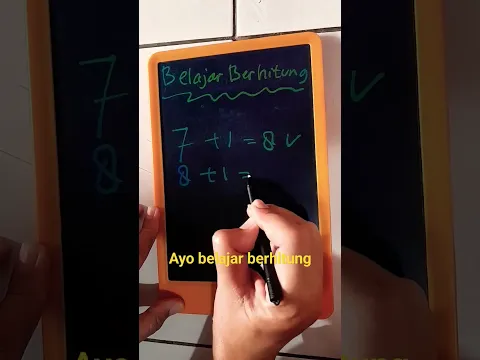 Belajar Berhitung
7 + 1 = 8 v
8 + 1 =
Ayo belajar berhitung